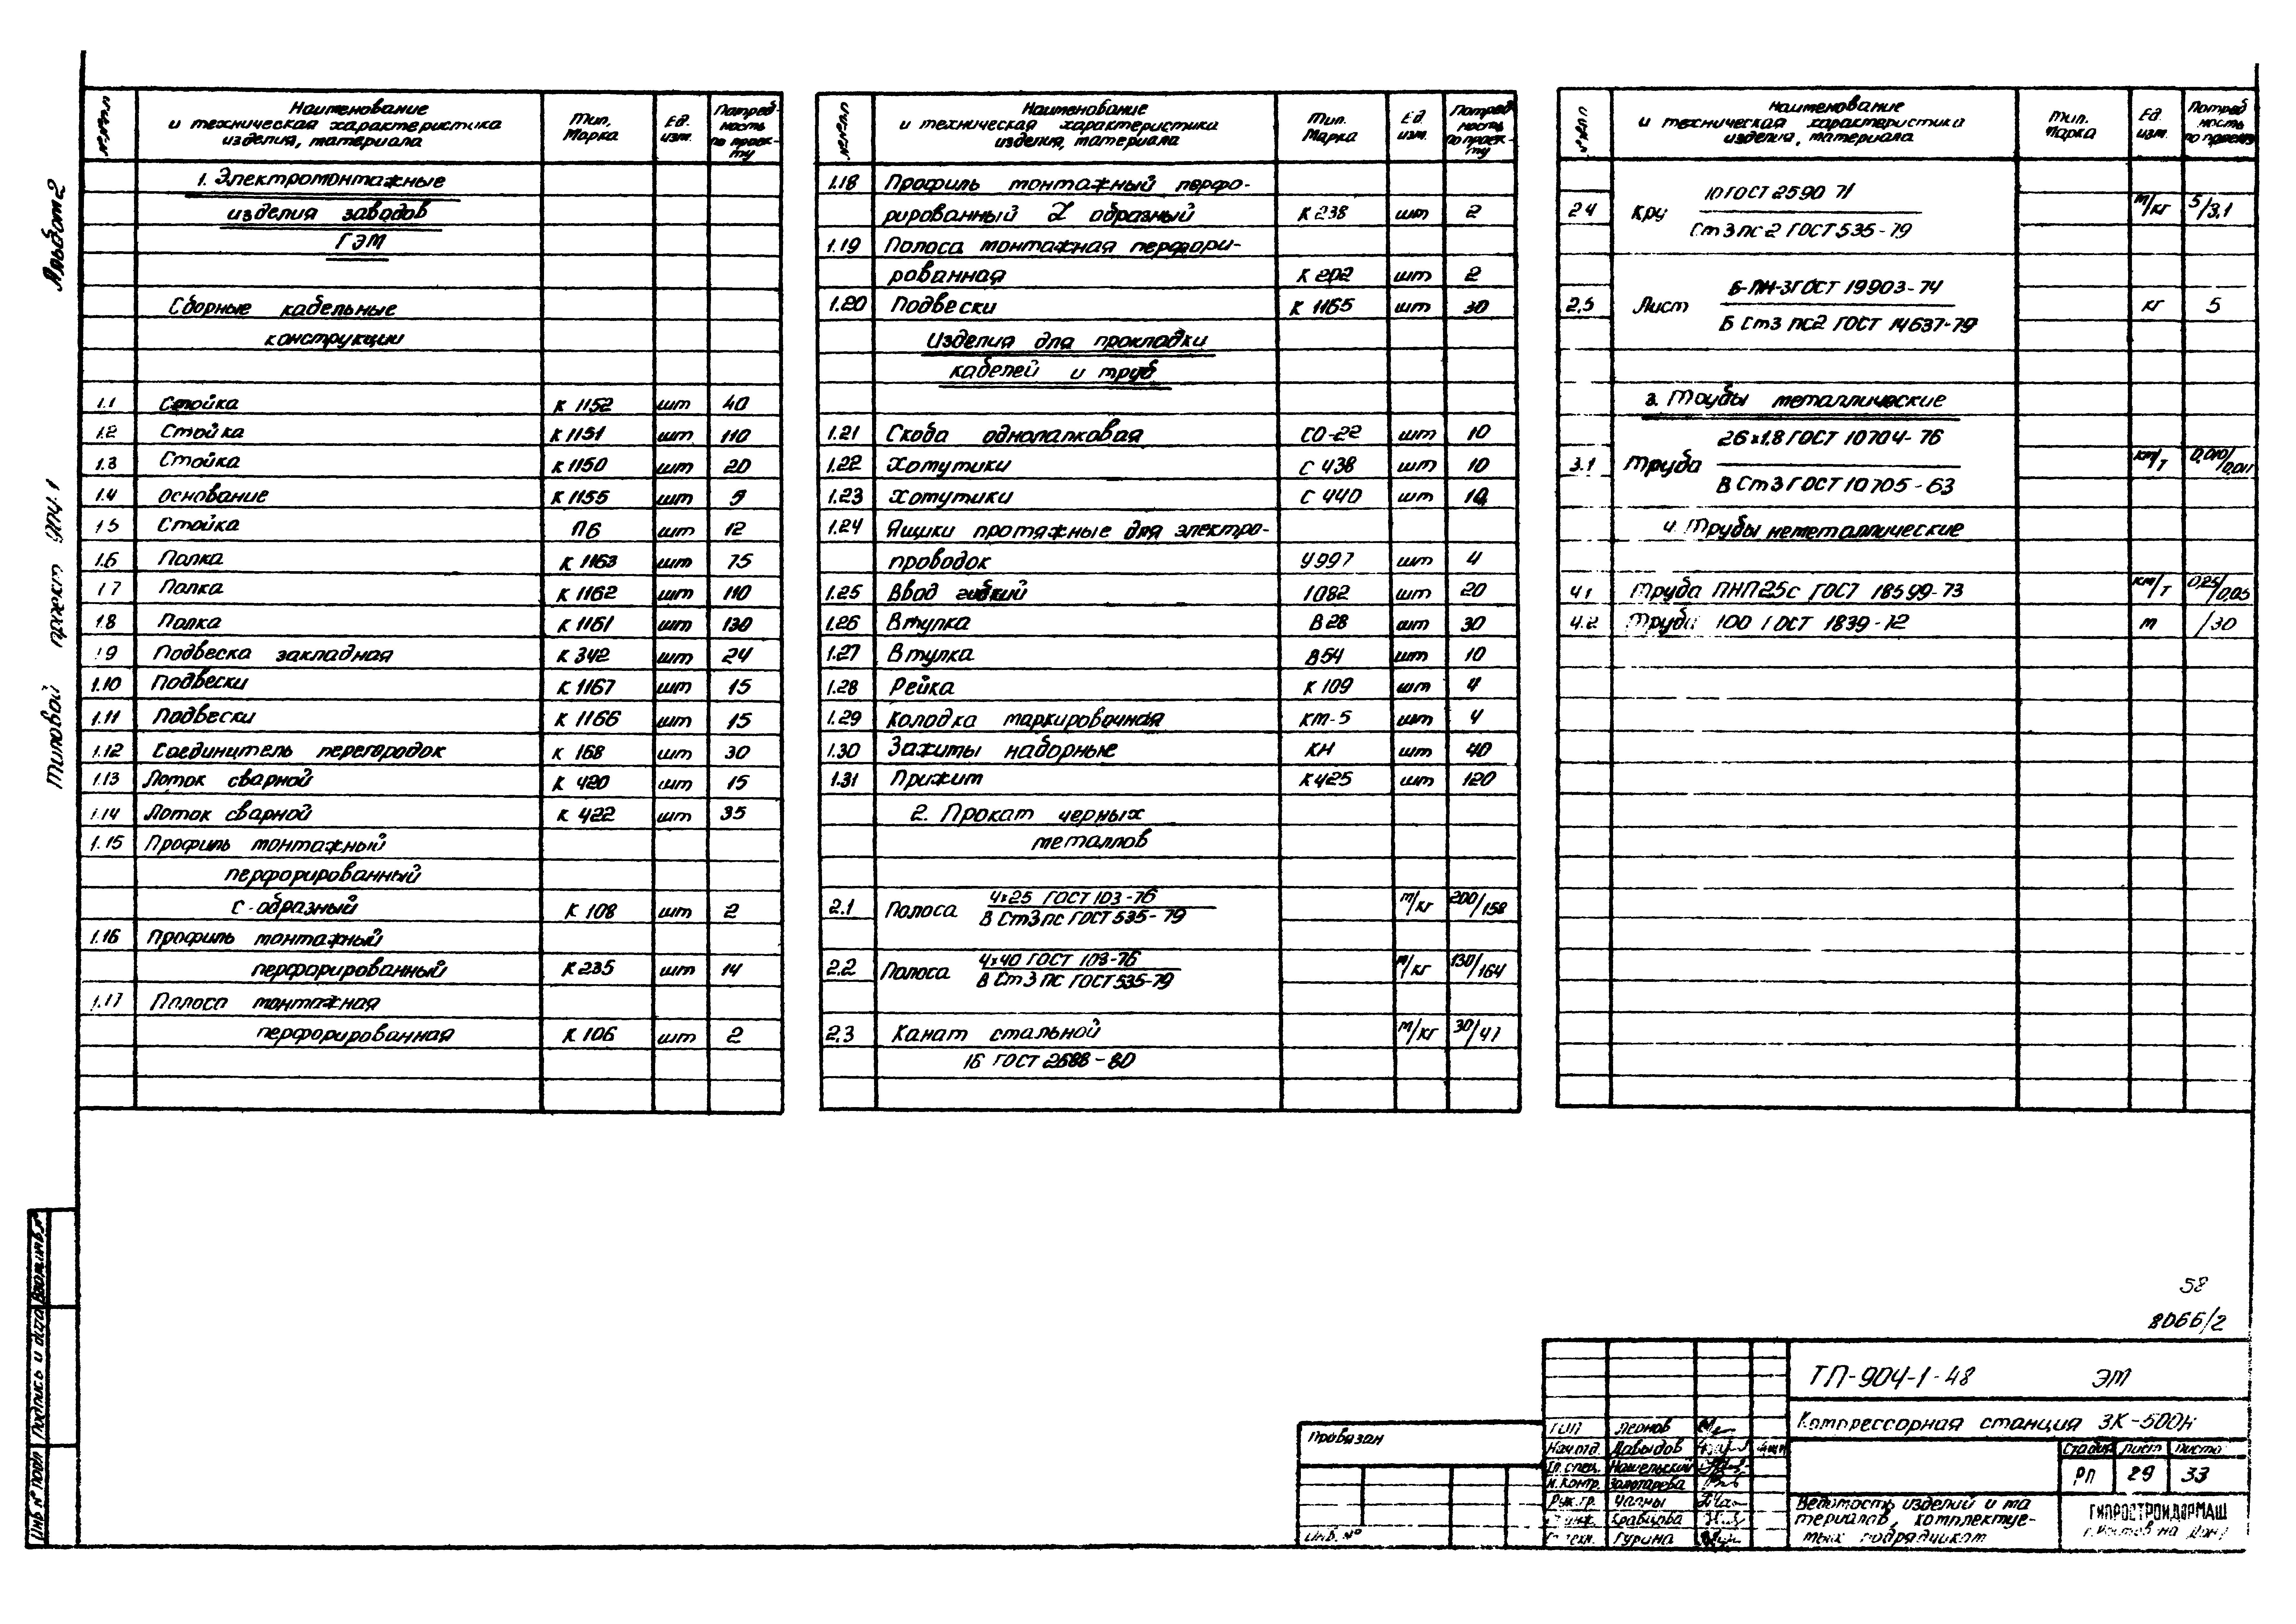 Альбом 2
Типовой проект 904-1
№№п.п
Наименование
и техническая характеристика
изделия, материала
Тип.
Марка
Ед.
изм.
Потреб-
ность
по проек-
ту
1. Электромонтажные
изделия заводов
ГЭМ
Сборные кабельные
конструкции
1.1 Стойка К 1152 шт 40
1.2 Стойка К 1151 шт 110
1.3 Стойка К 1150 шт 20
1.4 основание К 1155 шт 5
1.5 Стойка П6 шт 12
1.6 Полка К 1163 шт 75
1.7 Полка К 1162 шт 110
1.8 Полка К 1161 шт 130
1.9 Подвеска закладная К 342 шт 24
1.10 Подвески К 1167 шт 15
1.11 Подвески К 1166 шт 15
1.12 Соединитель перегородок К 168 шт 30
1.13 Лоток сварной К 420 шт 15
1.14 Лоток сварной К 422 шт 35
1.15 Профиль монтажный
перфорированный
с-образный К 108 шт 2
1.16 Профиль монтажный
перфорированный К 235 шт 14
1.17 Полоса монтажная
перфорированная К 106 шт 2
№№п.п
Наименование
и техническая характеристика
изделия, материала
Тип.
Марка
Ед.
изм.
Потреб-
ность
по проек-
ту
1.18 Профиль монтажный перфо-
рированный Z образный К 238 шт 2
1.19 Полоса монтажная перфори-
рованная К 202 шт 2
1.20 Подвески К 1165 шт 30
Изделия для прокладки
кабелей и труб
1.21 Скоба однолапковая СО-22 шт 10
1.22 Хомутики С 438 шт 10
1.23 Хомутики С 440 шт 10
1.24 Ящики протяжные для электро-
проводок У997 шт 4
1.25 Ввод гибкий 1082 шт 20
1.26 Втулка В28 шт 30
1.27 Втулка В54 шт 10
1.28 Рейка К 109 шт 4
1.29 Колодка маркировочная КМ-5 шт 4
1.30 Зажимы наборные КН шт 40
1.31 Прижим К425 шт 120
2. Прокат черных
металлов
4х25 ГОСТ 103-76
2.1 Полоса м/кг 200/158
В Ст3пс ГОСТ 535-79
4х40 ГОСТ 103-76
2.2 Полоса м/кг 130/164
В Ст3пс ГОСТ 535-79
2.3 Канат стальной м/кг 30/41
16 ГОСТ 2688-80
№№п.п
Наименование
и техническая характеристика
изделия, материала
Тип.
Марка
Ед.
изм.
Потреб
ность
по проекту
10 ГОСТ 2590 71
2.4 Кру м/кг 5/3,1
Ст3пс2 ГОСТ 535-79
Б-ПН-3 ГОСТ 19903-74
2.5 Лист кг 5
Б Ст3 пс2 ГОСТ 14637-79
3. Трубы металлические
26х1,8 ГОСТ 10704-76
3.1 Труба км/т 0,010/0,011
В Ст3 ГОСТ 10705-63
4. Трубы неметаллические
4.1 Труба ПНП25с ГОСТ 18599-73 км/т 0,25/0,05
4.2 Труба 100 ГОСТ 1839-72 м /30
58
8066/2
ТП-904-1-48 ЭМ
Компрессорная станция 3К-500Н
Стадия Лист Листов
РП 29 33
Ведомость изделий и ма
териалов, комплектуе-
мых подрядчиком
ГИПРОСТРОЙДОРМАШ
г. Ростов на Дону
ГИП Леонов
Нач.отд. Давыдов
Гл.спец. Нашельский
Н.контр. Золотарева
Рук.гр. Чалны
Кравцова
Гурина
Привязан
Инв. №
Взам.инв.№
Подпись и дата
Инв № подл